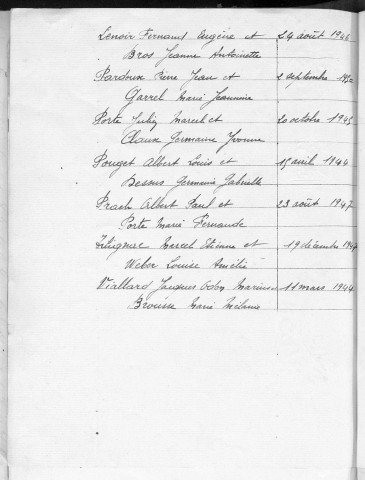 Lenoir Fernand Eugène et 24 août 1946
Bros Jeanne Antoinette
Pardoux Pierre Jean et 2 septembre 1950
Garrel Marie Jeannine
Porte Julien Marcel et 20 octobre 1945
Claux Germaine Yvonne
Pouget Albert Louis et 15 avril 1944
Bessous Germaine Gabrielle
Prach Albert Paul et 23 août 1947
Porte Marie Fernande
Marcel Etienne et 19 décembre 1947
Weber Louise Amélie
Viallard Jacques Odon Marius 11 mars 1944
Brousse Marie Mélanie